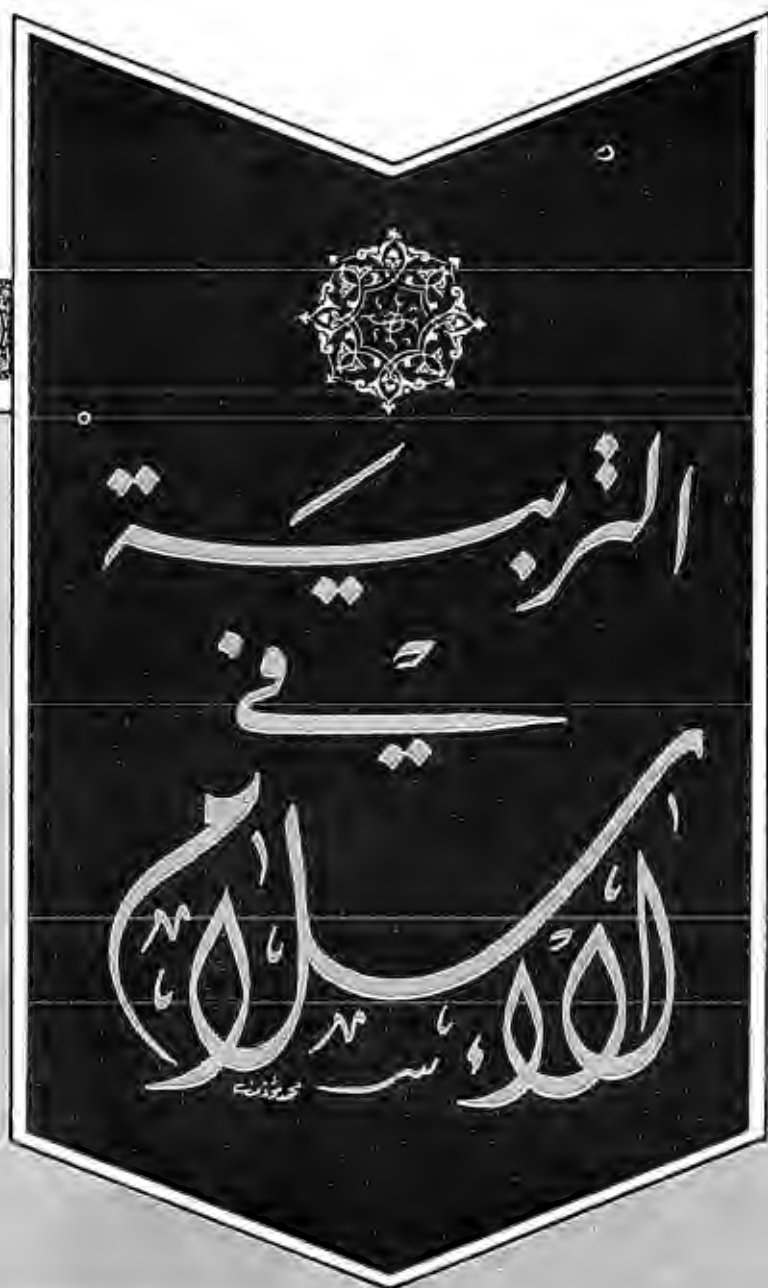 التربية
في
الإسلام